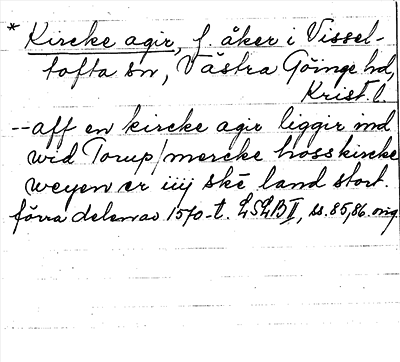 * Kircke agir, f. åker i Vissel-
tofta sn, Västra Göinge hd,
Krist. l.
--aff en kircke agir liggir ind
wid Torup/mercke hoss kircke
weyen er iiij ske land stort.
förra delen av 1570-t. LSLB II, ss. 85, 86. orig.